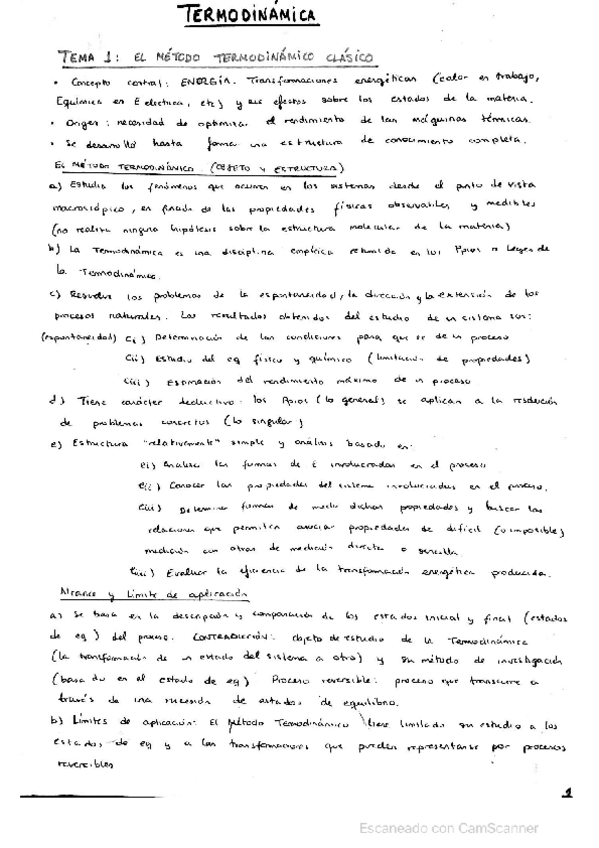 TERMODINÁMICA
TEMA 1: EL MÉTODO TERMODINÁMICO CLÁSICO
• Concepto central: ENERGÍA. Transformaciones energéticas (calor en trabajo,
Equímica en E electrica, etc) y sus efectos sobre los estados de la materia.
• Origen: necesidad de optimizar el rendimiento de las máquinas térmicas.
• Se desarrolló hasta formar una estructura de conocimiento completa.
EL MÉTODO TERMODINÁMICO (OBJETO Y ESTRUCTURA)
a) Estudia los fenómenos que ocurren en los sistemas desde el punto de vista
macroscópico, en función de las propiedades físicas observables y medibles
(no realiza ninguna hipótesis sobre la estructura molecular de la materia)
b) La Termodinámica es una disciplina empírica resumida en los Ppios o Leyes de
la Termodinámica.
c) Resuelve los problemas de la espontaneidad, la dirección y la extensión de los
procesos naturales. Los resultados obtenidos del estudio de un sistema son:
(espontaneidad) ci) Determinación de las condiciones para que se de un proceso
cii) Estudio del eq físico y químico (limitación de propiedades)
ciii) Estimación del rendimiento máximo de un proceso
d) Tiene carácter deductivo: los Ppios (lo general) se aplican a la resolución
de problemas concretos (lo singular)
e) Estructura "relativamente" simple y análisis basado en:
ei) Analizar las formas de E involucradas en el proceso
eii) Conocer las propiedades del sistema involucradas en el proceso.
eiii) Determinar formas de medir dichas propiedades y buscar las
relaciones que permiten asociar propiedades de difícil (o imposible)
medición con otras de medición directa o sencilla
eiiii) Evaluar la eficiencia de la transformación energética producida.
Alcance y Límite de aplicación
a) Se basa en la descripción y comparación de los estados inicial y final (estados
de eq) del proceso. CONTRADICCIÓN: objeto de estudio de la Termodinámica
(la transformación de un estado del sistema a otro) y su método de investigación
(basado en el estado de eq) Proceso reversible: proceso que transcurre a
través de una sucesión de estados de equilibrio.
b) Límites de aplicación: El Método Termodinámico tiene limitado su estudio a los
estados de eq y a las transformaciones que pueden representarse por procesos
reversibles
1
Escaneado con CamScanner